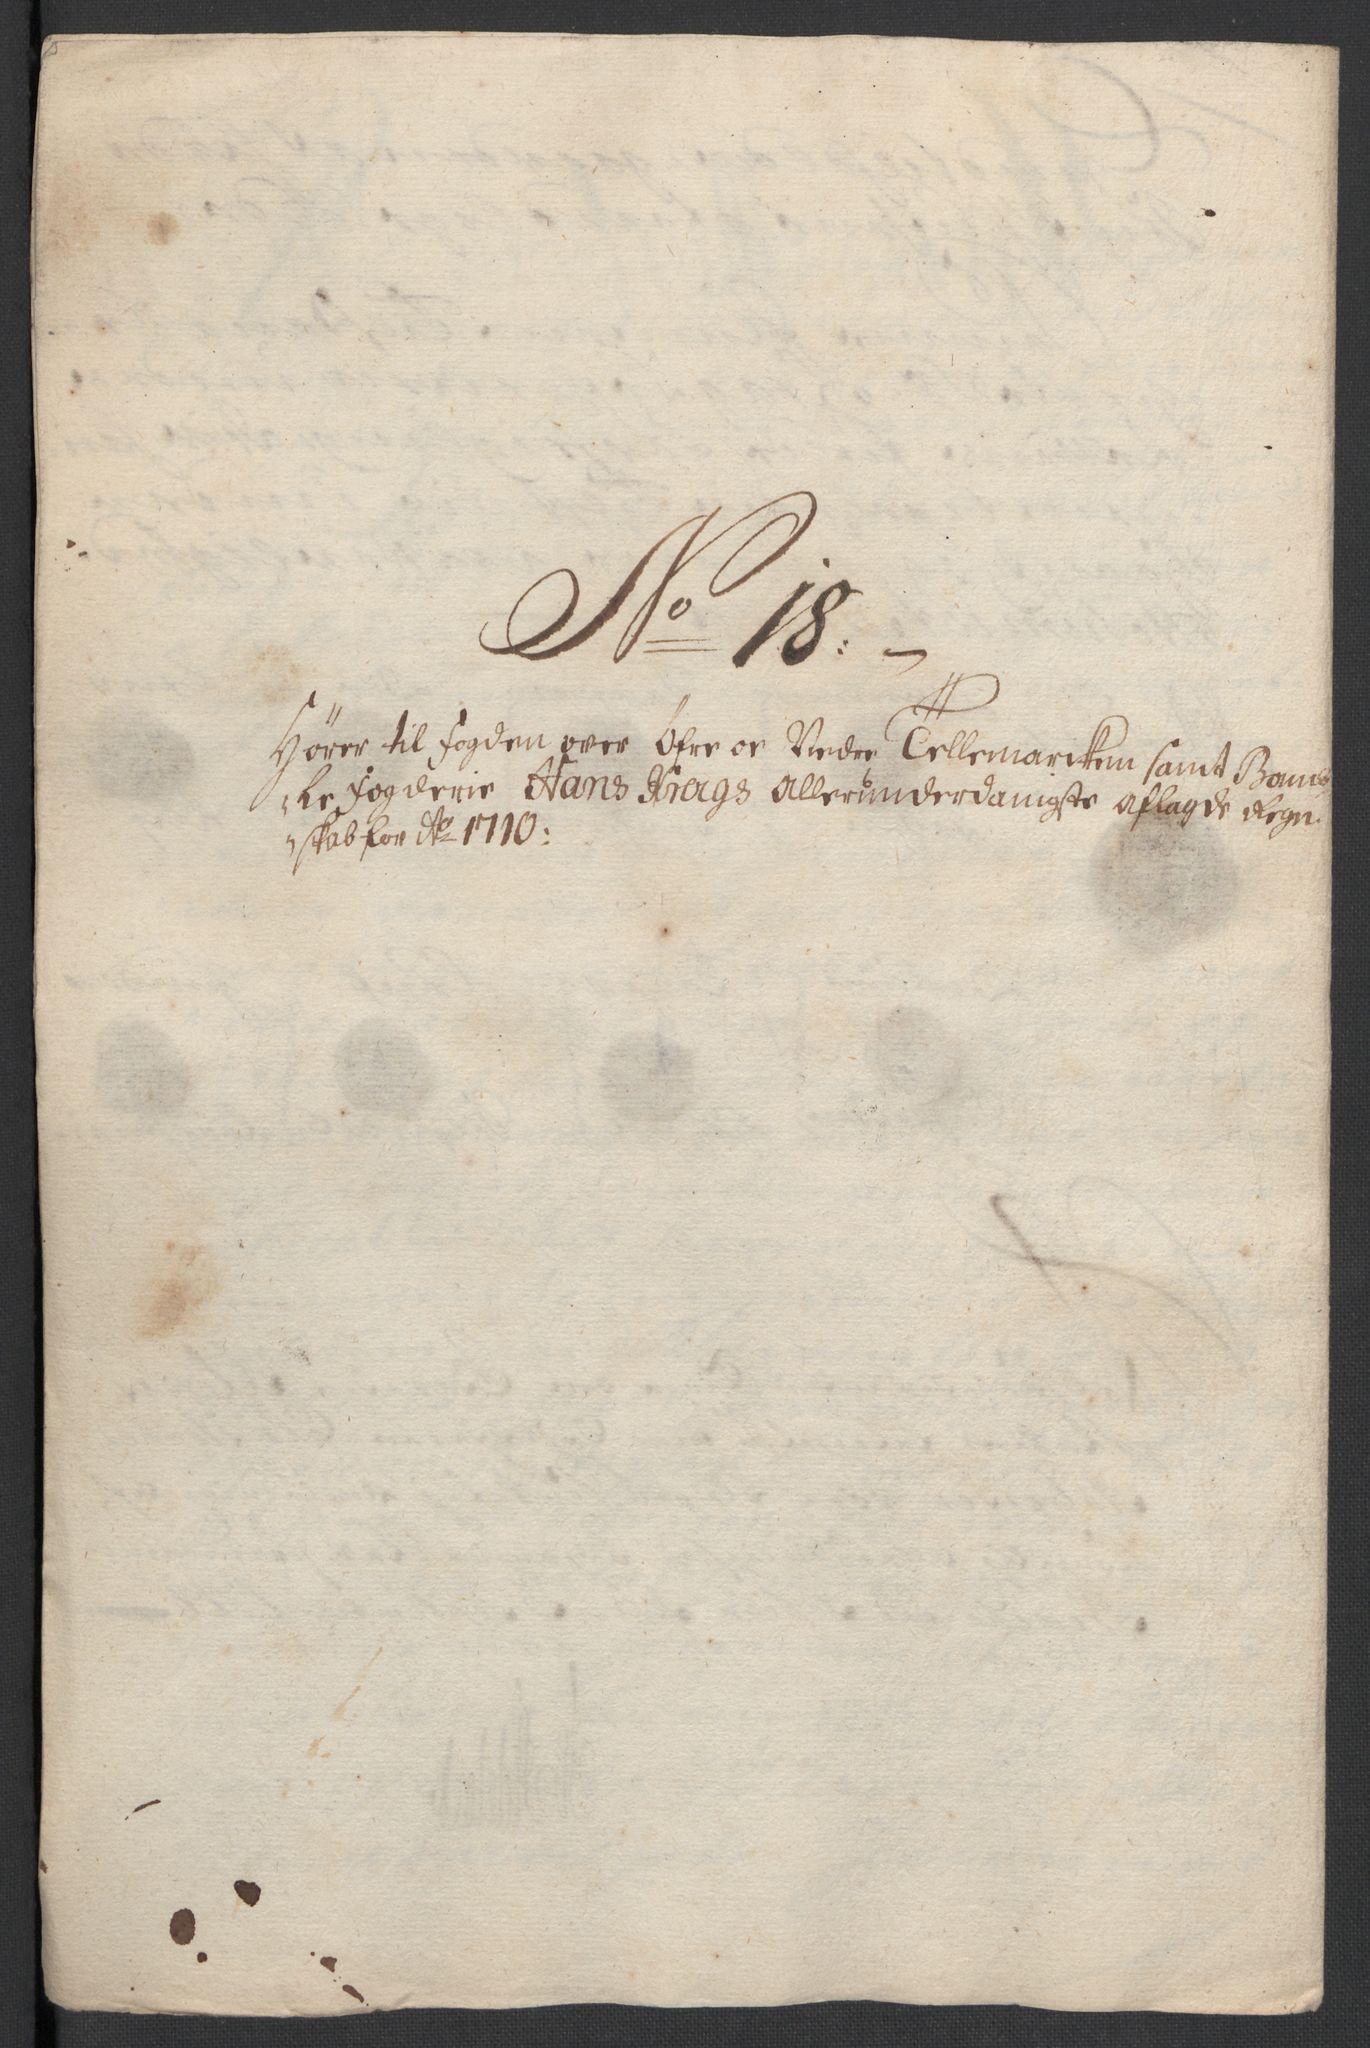 No 18:
Hörer til fogden over Öfre oc Nedre Tellemarcken samt Bams
:le fogderie Hans Krags allerunderdanigste aflagde Regn:
:skab for Ao 1710: